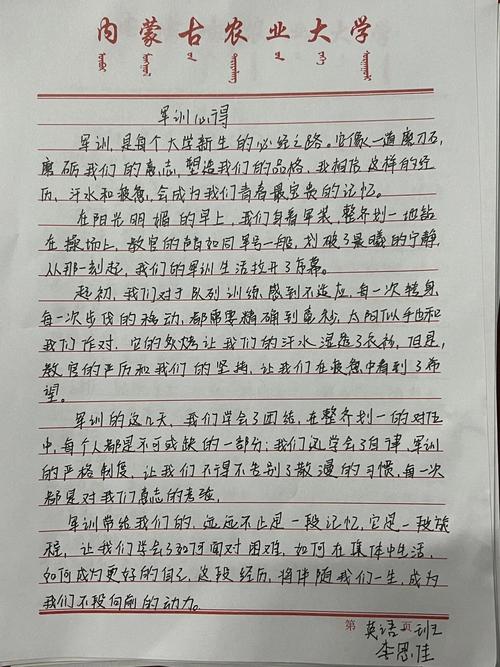 内蒙古农业大学
军训心得
军训,是每个大学新生的必经之路。它像一道磨刀石,
磨砺我们的意志,塑造我们的品格,我相信这样的经
历,汗水和疲惫,会成为我们青春最宝贵的记忆。
在阳光明媚的早上,我们身着军装,整齐划一地站
在操场上,教官的声音如同军号一般,划破了晨曦的宁静,
从那一刻起,我们的军训生活拉开了序幕。
起初,我们对于队列训练感到不适应,每一次转身,
每一次步伐的移动,都需要精确到毫秒,太阳似乎也和
我们作对,它的炙烤让我们的汗水湿透了衣衫,但是,
教官的严厉和我们的坚持,让我们在疲惫中看到了希
望。
军训的这几天,我们学会了团结,在整齐划一的队伍
中,每个人都是不可或缺的一部分;我们还学会了自律,军训
的严格制度,让我们不得不告别了散漫的习惯,每一次
都是对我们意志的考验。
军训带给我们的,远远不止是一段记忆,它是一段旅
程,让我们学会了如何面对困难,如何在集体中生活,
如何成为更好的自己,这段经历,将伴随我们一生,成为
我们不段向前的动力。
第 页
英语一班
李思佳